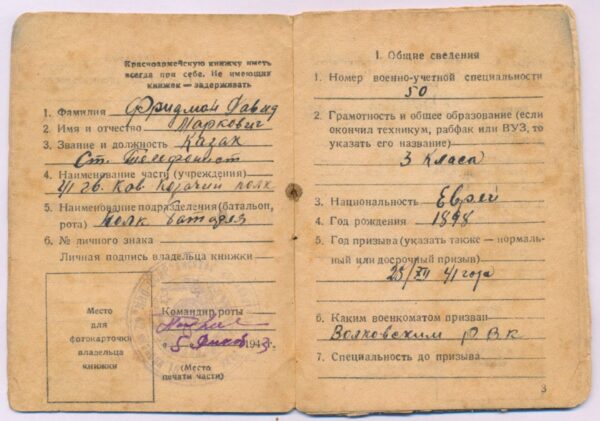 Красноармейскую книжку иметь
всегда при себе. Не имеющих
книжек — задерживать
1. Фамилия Фридман Давид
2. Имя и отчество Маркович
3. Звание и должность Казак
Ст. Телефонист
4. Наименование части (учреждения)
гв. Кав. полк
5. Наименование подразделения (батальон,
рота) полк батарея
6. № личного знака
Личная подпись владельца книжки
Место
для
фотокарточки
владельца
книжки
Командир роты
5 194 г.
(Место
печати части)
I. Общие сведения
1. Номер военно-учетной специальности
50
2. Грамотность и общее образование (если
окончил техникум, рабфак или ВУЗ, то
указать его название)
3 Класа
3. Национальность Еврей
4. Год рождения 1898
5. Год призыва (указать также — нормаль-
ный или досрочный призыв)
41 года
6. Каким военкоматом призван
Волковским РВК
7. Специальность до призыва
3